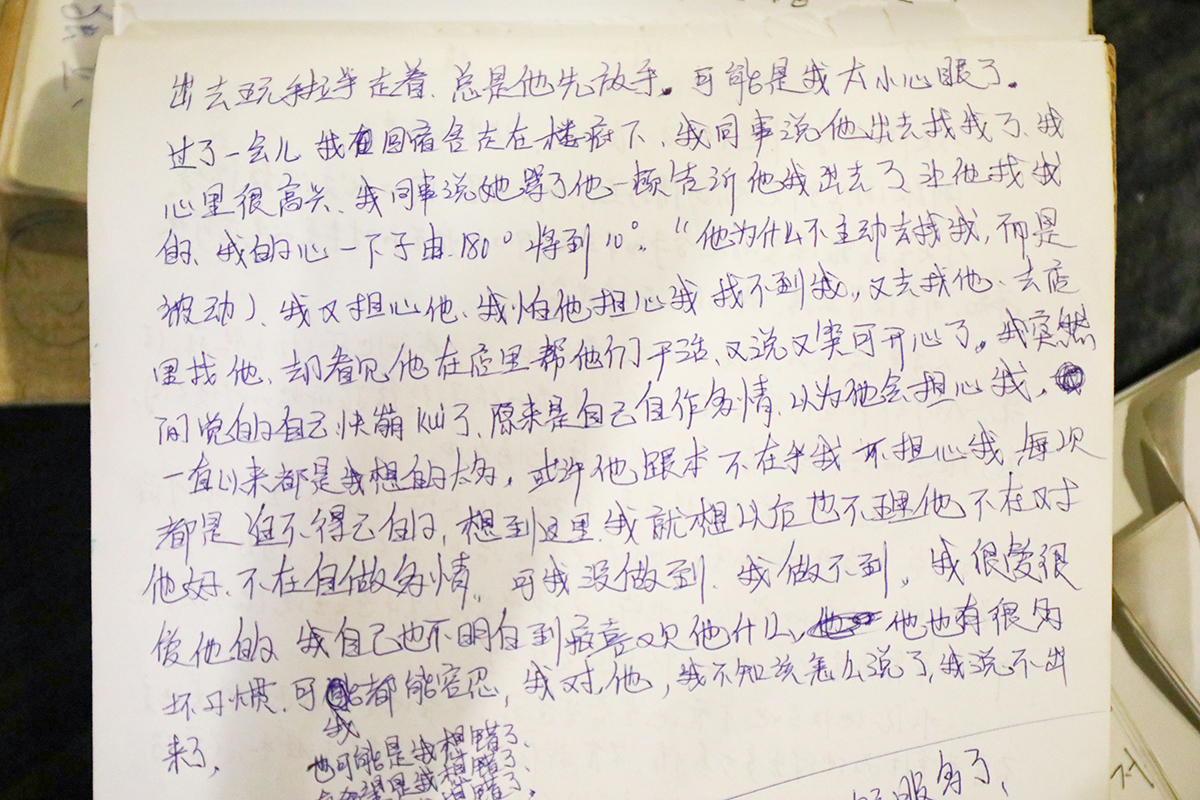 出去玩手拉手走着、总是他先放手。可能是我太小心眼了。
过了一会儿我回宿舍走在楼底下、我同事说他出去找我了、我
心里很高兴、我同事说她骂了他一顿告诉他我出去了让他找我
的、我的心一下子由180°将到10°。“他为什么不主动去找我,而是
被动)、我又担心他、我怕他担心我找不到我,又去找他、去店
里找他、却看见他在店里帮他们干活、又说又笑可开心了。我突然
间觉的自己快崩kui了、原来是自己自作多情、以为他会担心我。
一直以来都是我想的太多,或许他跟本不在乎我不担心我、每次
都是迫不得已的,想到这里、我就想以后也不理他不在对
他好、不在自做多情。可我没做到、我做不到。我很爱很
爱他的我自己也不明白到底喜欢他什么、他也有很多
坏习惯、可我都能容忍,我对他,我不知该怎么说了,我说不出
来了,
也可能是我想错了、
是我想错了、
服务了、